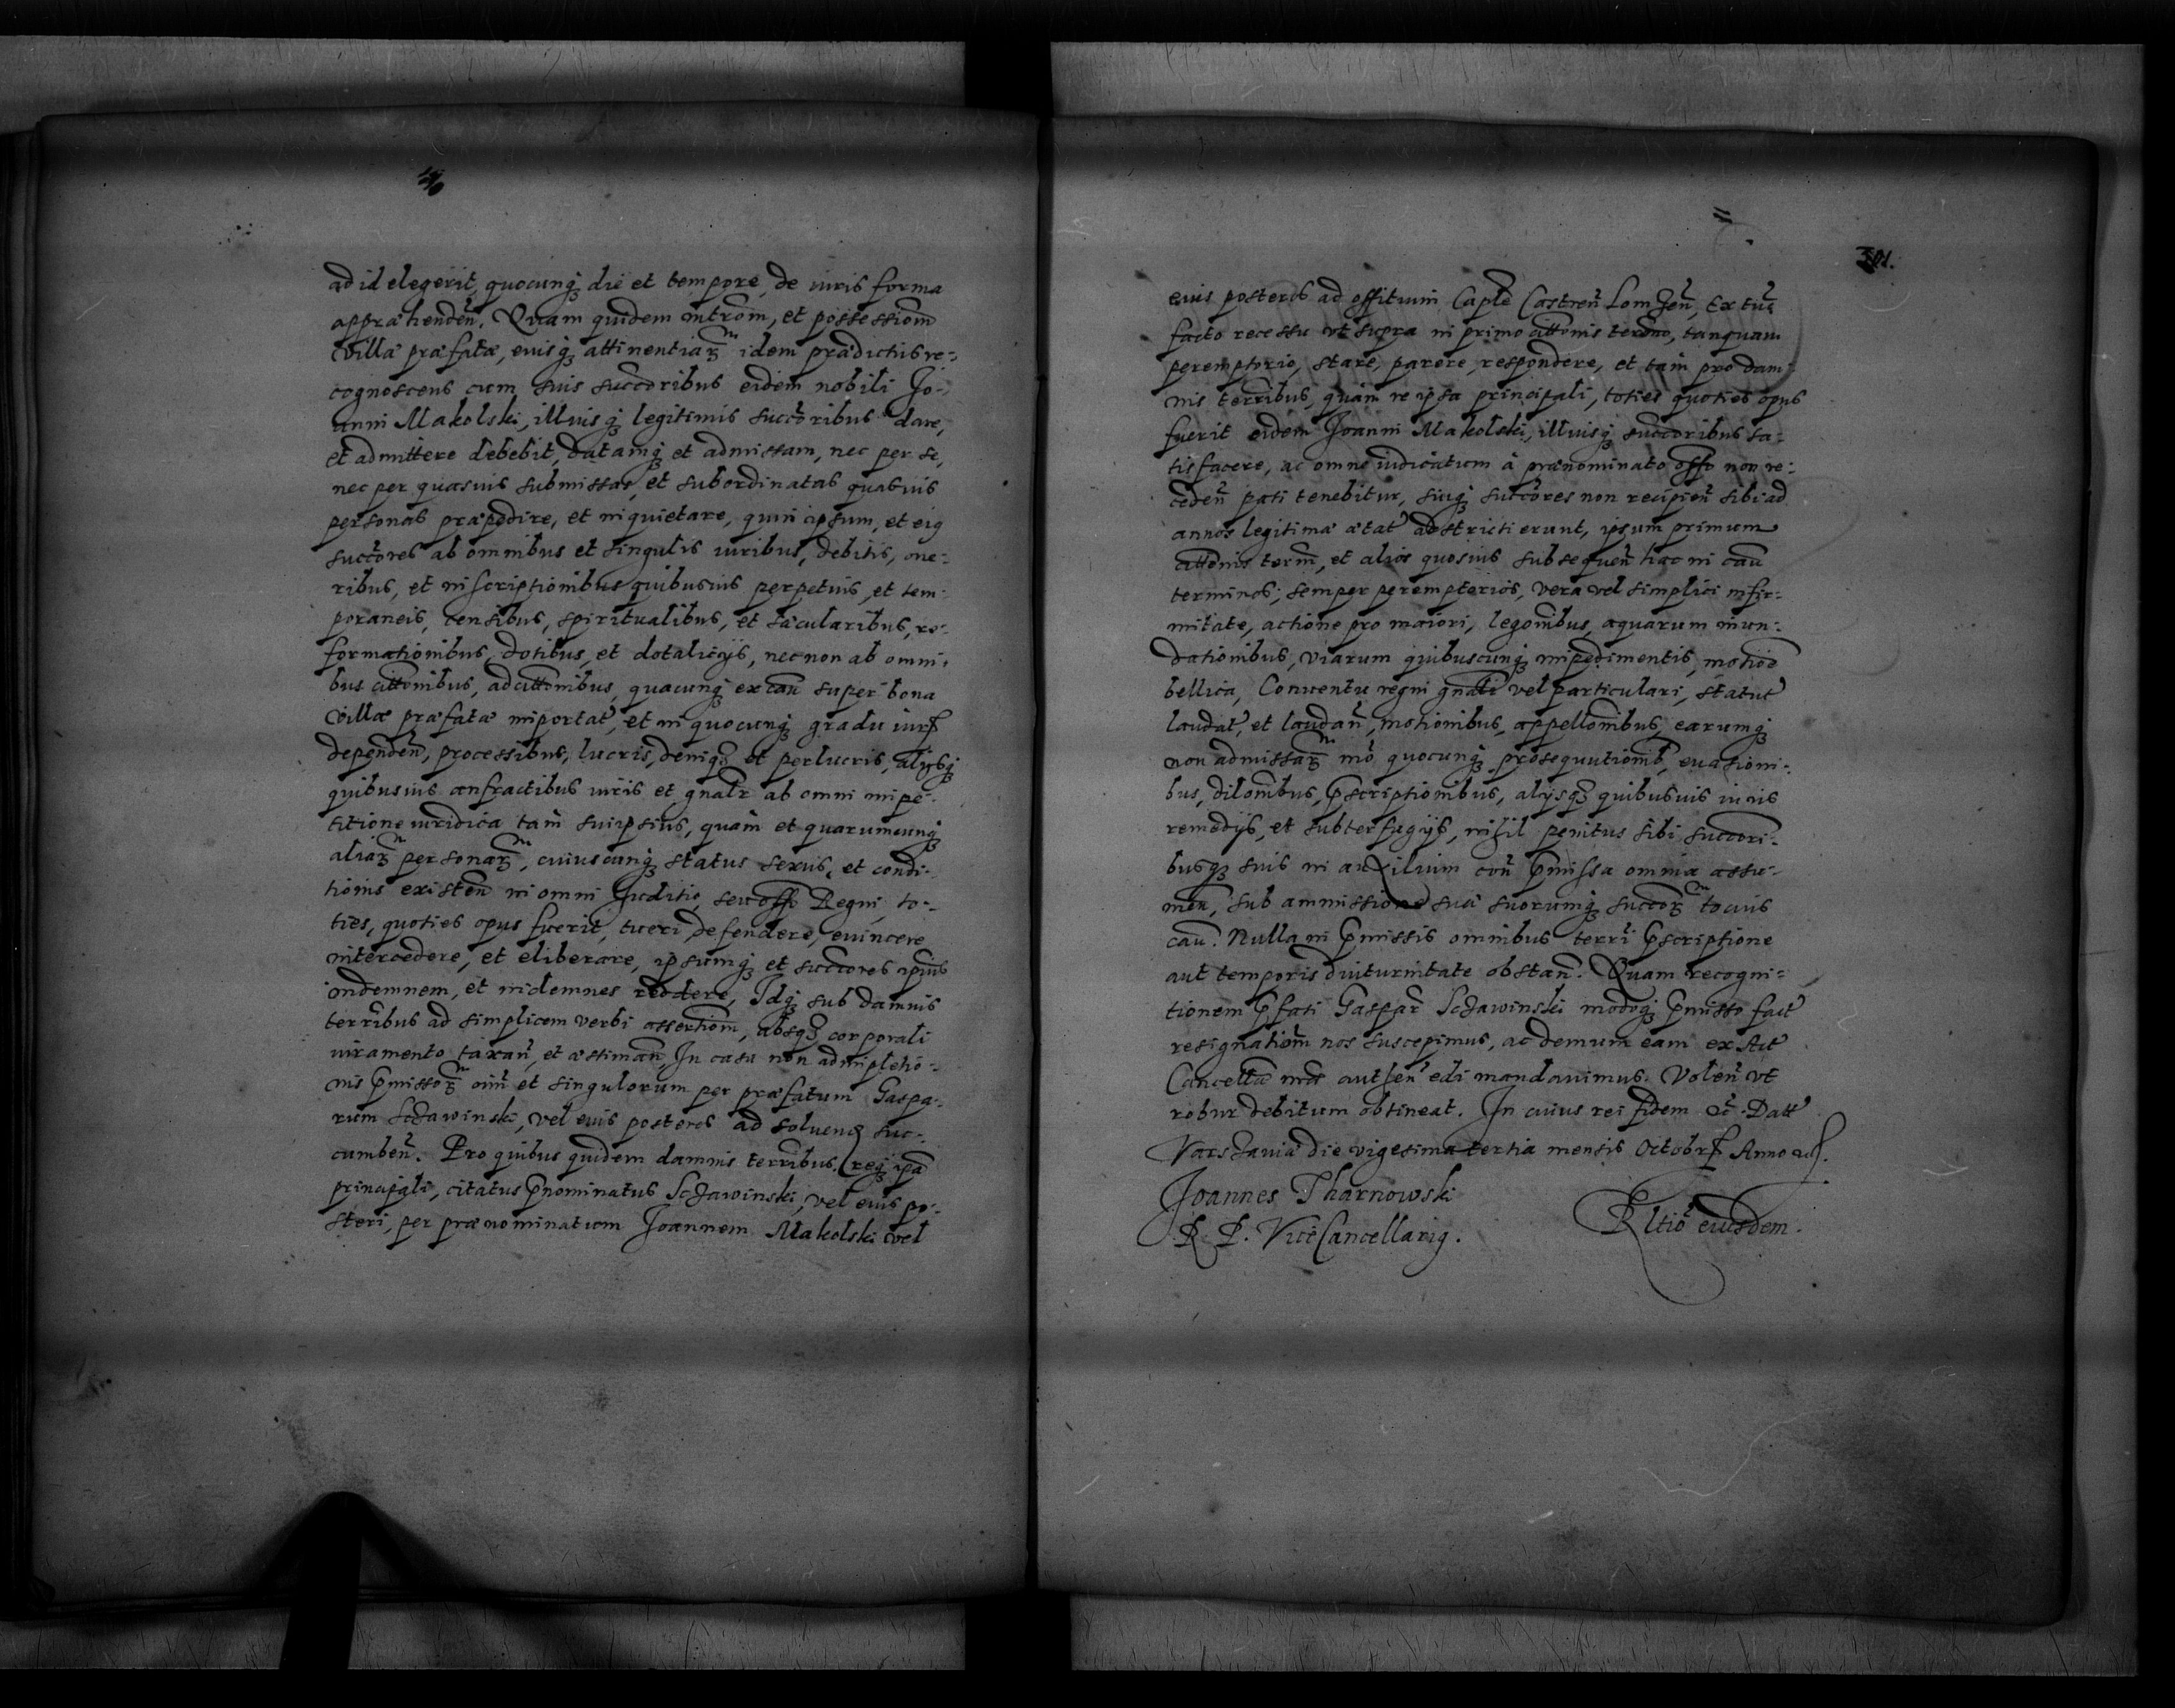 ad id elegerit, quocunq₃ die et tempore, de iuris forma
appræhendeñ. Quam quidem intrōm, et possessionē
villæ præfatæ, euisq₃ attinentiarū idem prædictus re-
cognoscens cum suis succōribus eidem nobili Jo-
anni Makolski, illiusq₃ legitimis succōribus dare,
et admittere debebit, datamq₃ et admissam, nec per se,
nec per quasuis submissas, et subordinatas quasuis
personas præpedire, et inquietare, quin ipsum, et eiꝰ
succōres ab omnibus et singulis iuribus, debitis, one-
ribus, et inscriptionibus quibusuis perpetuis, et tem-
poraneis, censibus, spiritualibus, et sæcularibus, re-
formationibus, dotibus, et dotalicijs, nec non ab omni-
bus cittōnibus, adcittōnibus, quacunq₃ ex caū super bona
villæ præfatæ importat, et in quocunq₃ gradu iuris
dependeñ, processibus, lucris, deniq₃ et perlucris, alijsq₃
quibusuis anfractibus iuris et gnalr ab omni impe-
titione iuridica tam suipsius, quàm et quarumcunq₃
aliarū personarū, cuiuscunq₃ status sexus, et condi-
tionis existeñ in omni Juditio, seu offo Regni, to-
ties, quoties opus fuerit, tueri, defendere, euincere
intercedere, et eliberare, ipsumq₃ et succōres ipsius
indemnem, et indemnes reddere, Idq₃ sub damnis
terrībus ad simplicem verbi assertiōm, absq₃ corporali
iuramento taxañ, et æstimañ, In casu non adimpletio-
nis p̄missorū oīm et singulorum per præfatum Gaspa-
rum Sczawinski, vel euis posteros ad soluend suc-
cumbeñ. Pro quibus quidem damnis terrībus, req₃ ipā
principali, citatus p̄nominatus Sczawinski, vel euis po-
steri, per prænominatum Joannem Makolski vel
301.
euis posteros ad offitium Capłe Castreñ Lomzeñ, Ex tūc
facto recessu vt supra in primo cittōnis termō, tanquam
peremptorio, stare, parere respondere, et tam pro dam-
nis terrībus, quàm re ipsa principali, toties quoties opus
fuerit eidem Joanni Makolski, illiusq₃ succōribus sa-
tisfacere, ac omne iudicatum à prænominato offo non re-
cedeñ pati tenebitur, suiq₃ succōres non recipieñ sibi ad
annos legitimæ ætat adstricti erunt, ipsum primum
cittōnis termī, et alios quosuis subsequeñ hac in caū
terminos, semper peremptorios, vera vel simplici infir-
mitate, actione pro maiori, legōnibus, aquarum inun-
dationibus, viarum quibuscunq₃ impedimentis, motione
bellica, Conuentu regni gnali vel particulari, statut
laudat, et laudañ, motionibus, appellōnibus, earumq₃
non admissarū mō quocunq₃ prosequutionib, euationi-
bus, dilōnibus, p̄scriptionibus, alijsq₃ quibusuis iuris
remedijs, et subterfugijs, nihil penitus sibi succōri-
busq₃ suis in auxilium coñ p̄missa omnia assu-
meñ, sub ammissione sui suorumq₃ succorū tocius
caū. Nulla in p̄missis omnibus terrī p̄scriptione
aut temporis diuturnitate obstañ. Quam recogni-
tionem p̄fati Gaspar Sczawinski modoq₃ p̄misso fact
resignatiōm nos suscepimus, ac demum eam ex Act
Cancellæ nrae autheñ edi mandauimus. Voleñ vt
robur debitum obtineat. In cuius rei fidem &c. Datt
Varszauiæ die vigesima tertia mensis Octobris Anno ut s.
Joannes Tharnowski
R. P. ViceCancellariꝰ.
Rltiō eiusdem.